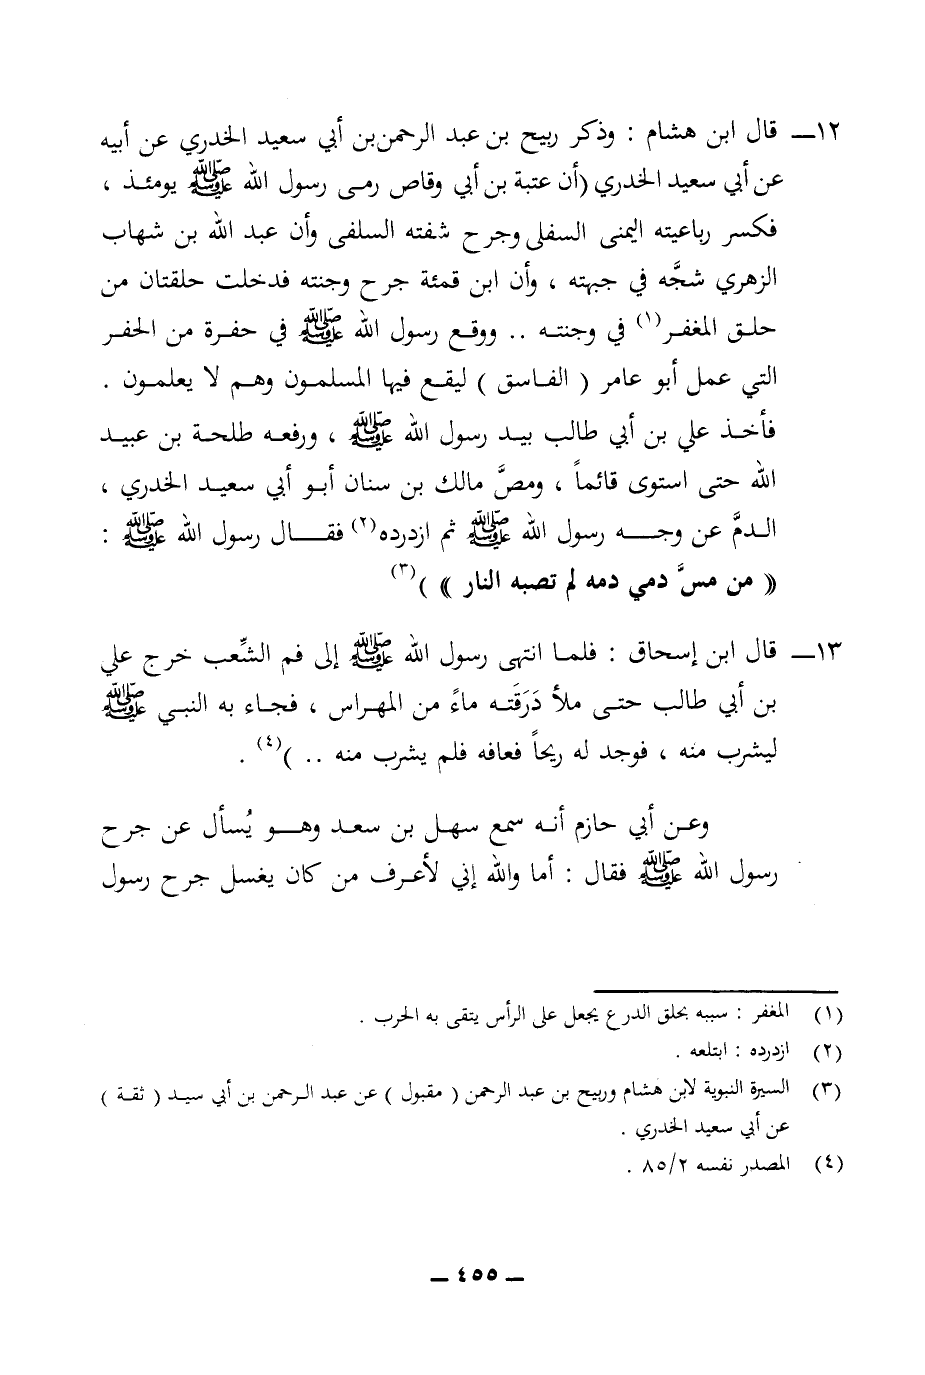 ١٢ــ قال ابن هشام : وذكر ربيح بن عبد الرحمن بن أبي سعيد الخدري عن أبيه
عن أبي سعيد الخدري (أن عتبة بن أبي وقاص رمى رسول الله ﷺ يومئذ ،
فكسر رباعيته اليمنى السفلى وجرح شفته السلفى وأن عبد الله بن شهاب
الزهري شجَّه في جبهته ، وأن ابن قمئة جرح وجنته فدخلت حلقتان من
حلق المغفر(١) في وجنته .. ووقع رسول الله ﷺ في حفرة من الحفر
التي عمل أبو عامر ( الفاسق ) ليقع فيها المسلمون وهم لا يعلمون .
فأخذ علي بن أبي طالب بيد رسول الله ﷺ ، ورفعه طلحة بن عبيد
الله حتى استوى قائماً ، ومصَّ مالك بن سنان أبو أبي سعيد الخدري ،
الدمَّ عن وجه رسول الله ﷺ ثم ازدرده(٢) فقال رسول الله ﷺ :
« من مسَّ دمي دمه لم تصبه النار » )(٣)
١٣ــ قال ابن إسحاق : فلما انتهى رسول الله ﷺ إلى فم الشِّعب خرج علي
بن أبي طالب حتى ملأ دَرَقَته ماءً من المهراس ، فجاء به النبي ﷺ
ليشرب منه ، فوجد له ريحاً فعافه فلم يشرب منه .. )(٤) .
وعن أبي حازم أنه سمع سهل بن سعد وهو يُسأل عن جرح
رسول الله ﷺ فقال : أما والله إني لأعرف من كان يغسل جرح رسول
(١) المغفر : سببه بحلق الدرع يجعل على الرأس يتقى به الحرب .
(٢) ازدرده : ابتلعه .
(٣) السيرة النبوية لابن هشام وربيح بن عبد الرحمن ( مقبول ) عن عبد الرحمن بن أبي سيد ( ثقة )
عن أبي سعيد الخدري .
(٤) المصدر نفسه ٨٥/٢ .
ــ ٤٥٥ ــ